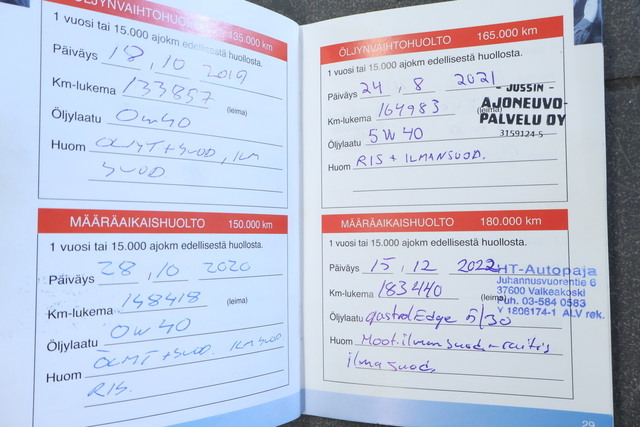 ÖLJYNVAIHTOHUOLTO 135.000 km
1 vuosi tai 15.000 ajokm edellisestä huollosta.
Päiväys 18, 10 2019
Km-lukema 133857
(leima)
Öljylaatu 0W40
Huom ÖLJYT + SUOD, ILM
SUOD
MÄÄRÄAIKAISHUOLTO 150.000 km
1 vuosi tai 15.000 ajokm edellisestä huollosta.
Päiväys 28, 10 2020
Km-lukema 148418
(leima)
Öljylaatu 0W40
Huom ÖLJYT + SUOD. ILM SUOD
RIS.
ÖLJYNVAIHTOHUOLTO 165.000 km
1 vuosi tai 15.000 ajokm edellisestä huollosta.
Päiväys 24, 8 2021
Km-lukema 164983
(leima)
Öljylaatu 5W40
Huom RIS + ILMANSUOD.
- JUSSIN -
AJONEUVO-
PALVELU OY
3159124-5
MÄÄRÄAIKAISHUOLTO 180.000 km
1 vuosi tai 15.000 ajokm edellisestä huollosta.
Päiväys 15, 12 2022
Km-lukema 183440
(leima)
Öljylaatu Castrol Edge 5/30
Huom Moot. ilman suod - raitis
ilma suod,
HT-Autopaja
Juhannusvuorentie 6
37600 Valkeakoski
Puh. 03-584 0583
Y 1806174-1 ALV rek.
29